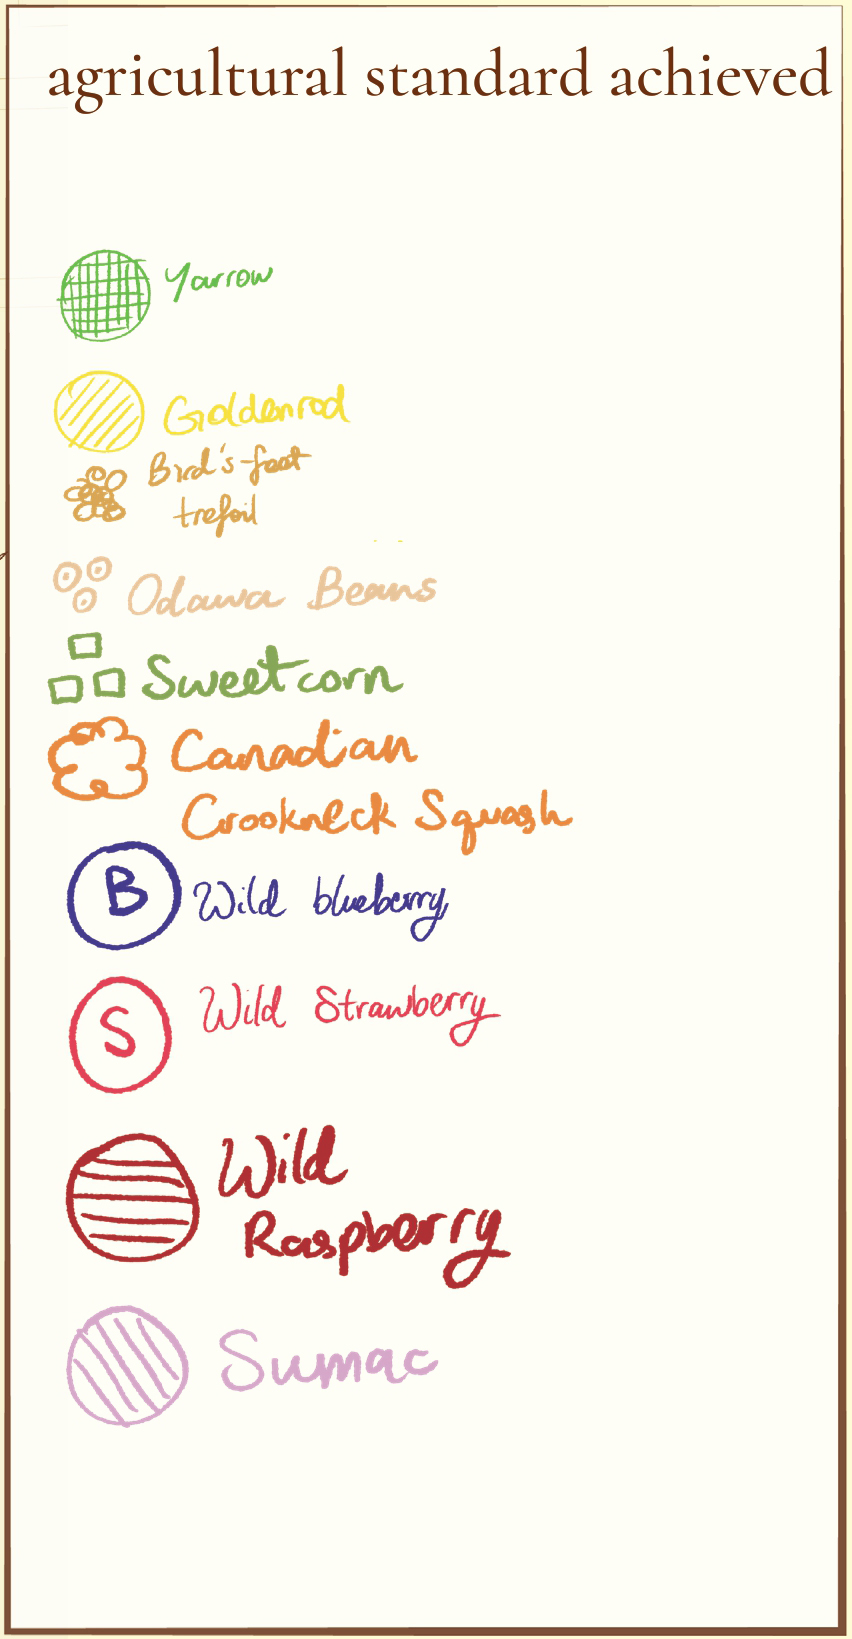 agricultural standard achieved
Yarrow
Goldenrod
Bird's-foot
trefoil
Odawa Beans
Sweetcorn
Canadian
Crookneck Squash
B Wild blueberry
S Wild Strawberry
Wild
Raspberry
Sumac